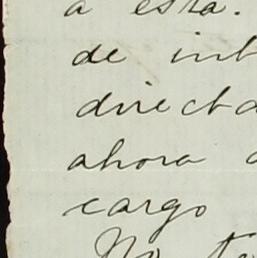 a esta.
de int
directa
ahora a
cargo
No te